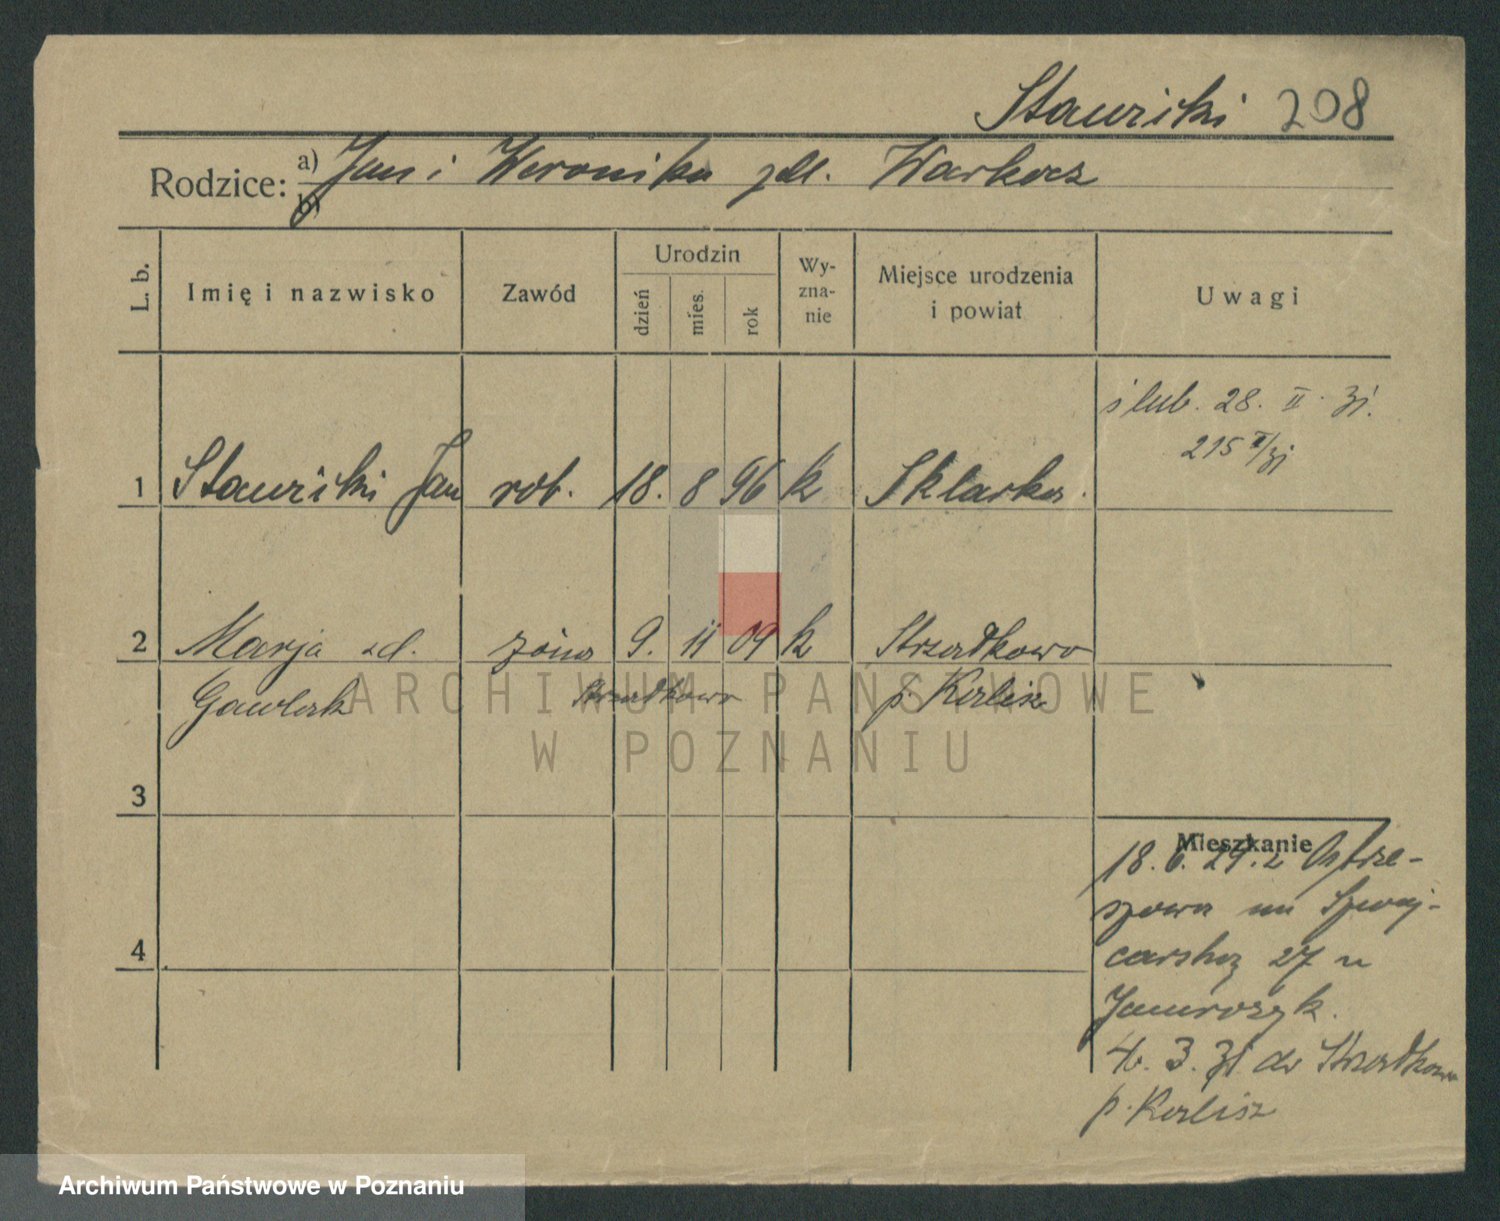 Stawicki 208
Rodzice: a) Jan i Weronika zdd. Warkocz
b)
L. b. Imię i nazwisko Zawód Urodzin Wyzna-nie Miejsce urodzenia i powiat Uwagi
dzień mies. rok
ślub. 28. II. 31.
215 II/31
1 Stawicki Jan rob. 18. 8 96 k Sklarka
2 Marja zd. żona 9. 11 09 k Strzałkowo
Gawlak Strzałkowo p. Kalisz
3
Mieszkanie
18. 6. 29. z Ostrze-
szowa na Szwaj-
4 carską 27 u
Jamroszyk.
4. 3. 31 do Strzałkowa
p. Kalisz
ARCHIWUM PAŃSTWOWE
W POZNANIU
Archiwum Państwowe w Poznaniu